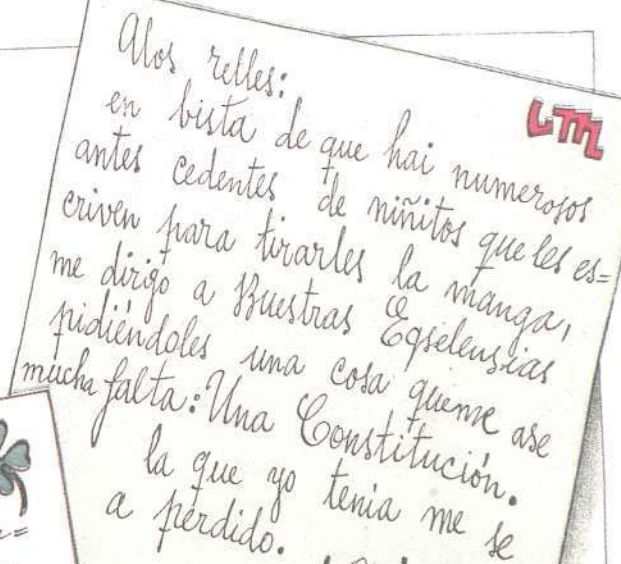 Alos relles:
LM
en bista de que hai numerosos
antes cedentes de niñitos que les es=
criven para tirarles la manga,
me dirijo a Buestras Eqselensias
pidiéndoles una cosa queme ase
mucha falta: Una Constitución.
la que yo tenia me se
a perdido.